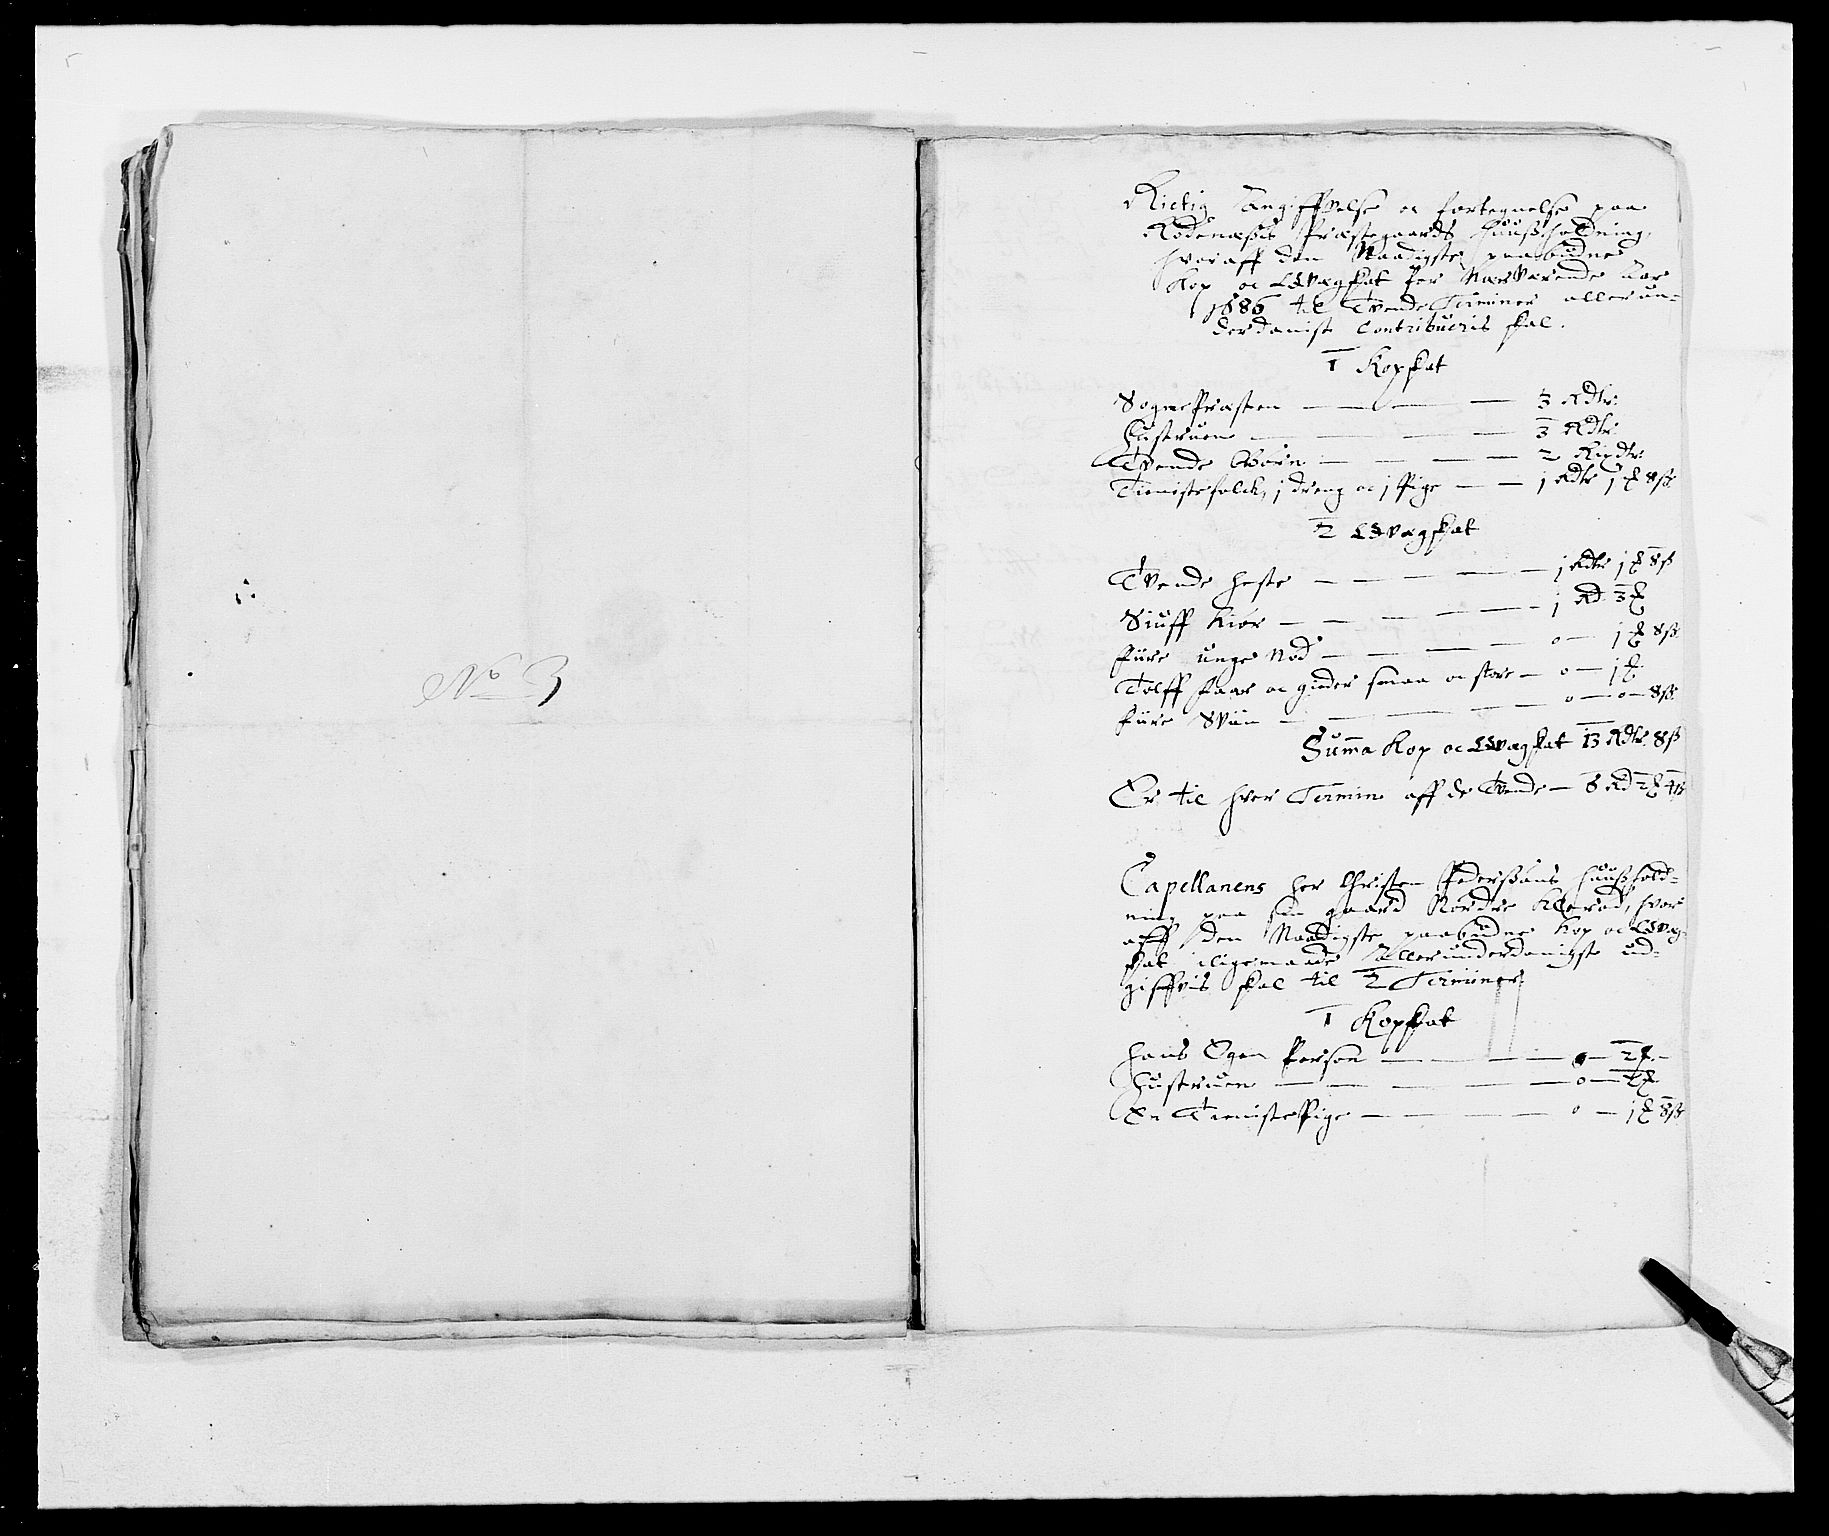 No 3
Rictig Angiffvelse oc fortegnelse paa
Rødenæßis Præstegaards Huußholdning,
hvoraff den Naadigste paabudne
Kop oc Qvægskat for Nærværende Aar
1686 til Tvende Terminer allerun-
derdanist Contribueris skal.
1 Kopskat
SognePræsten — — — 3 Rdlr.
Hustruen — — — 3 Rdlr
Tvende Børn — — — 2 Rixdlr
Tienistefolck, j dreng oc j Pige — — j Rdlr j ℔ 8 ß
2 Qvægskat
Tvende heste — — — — j Rdlr j ℔ 8 ß
Siuff Kiør — — — — j Rd 3 ℔
Fiire unge Nød — — — — 0 — j ℔ 8 ß
Tolff faar oc gieder smaa oc store — 0 — j ℔
Fiire Sviin — — — — 0 — 0 — 8 ß
Summa Kop oc Qvægskat 13 Rdlr 8 ß
Er til hver Termin aff de Tvende — 6 Rd 2 ℔ 4 ß
Capellanens her Christen Pederssøns Huußhold-
ning paa sin gaard Nordre , hvor
aff den Naadigste paabudne Kop oc Qvæg-
skat iligemaade Allerunderdanigste ud-
giffvis skal til 2 Terminer
1 Kopskat
Hans Egen Person — — — 0 — 2 ℔ —
Hustruen — — — — 0 — 2 ℔
En TienistePige — — — 0 — j ℔ 8 ß